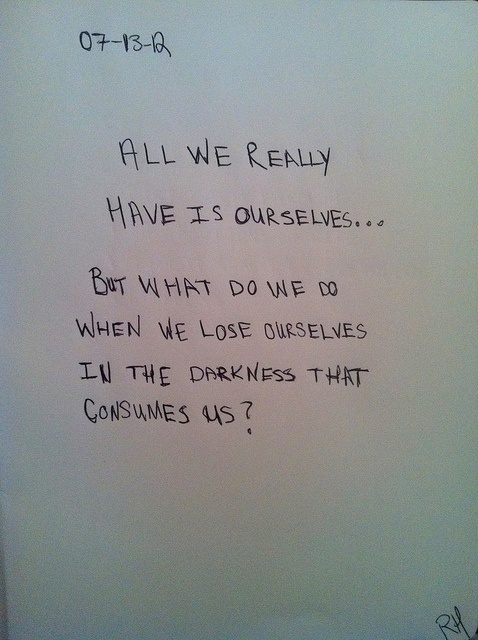 07-13-12
ALL WE REALLY
HAVE IS OURSELVES...
BUT WHAT DO WE DO
WHEN WE LOSE OURSELVES
IN THE DARKNESS THAT
CONSUMES US?
RH